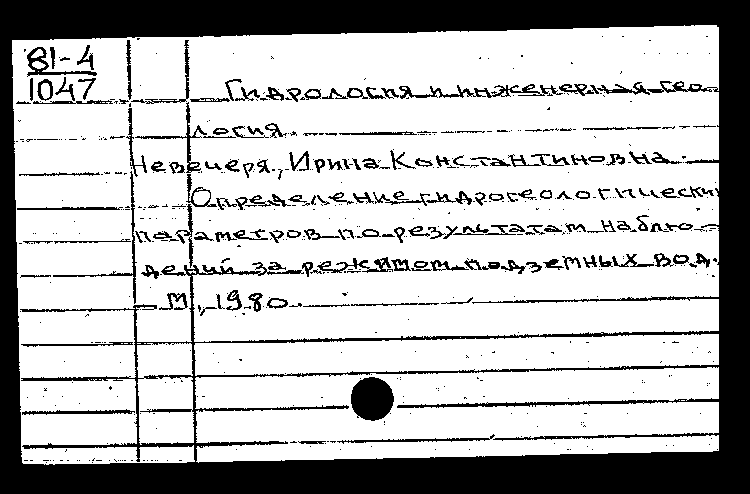 81-4
1047
Гидрология и инженерная гео-
логия.
Невечеря, Ирина Константиновна.
Определение гидрогеологически
параметров по результатам наблю-
дений за режимом подземных вод.
— М, 1980.